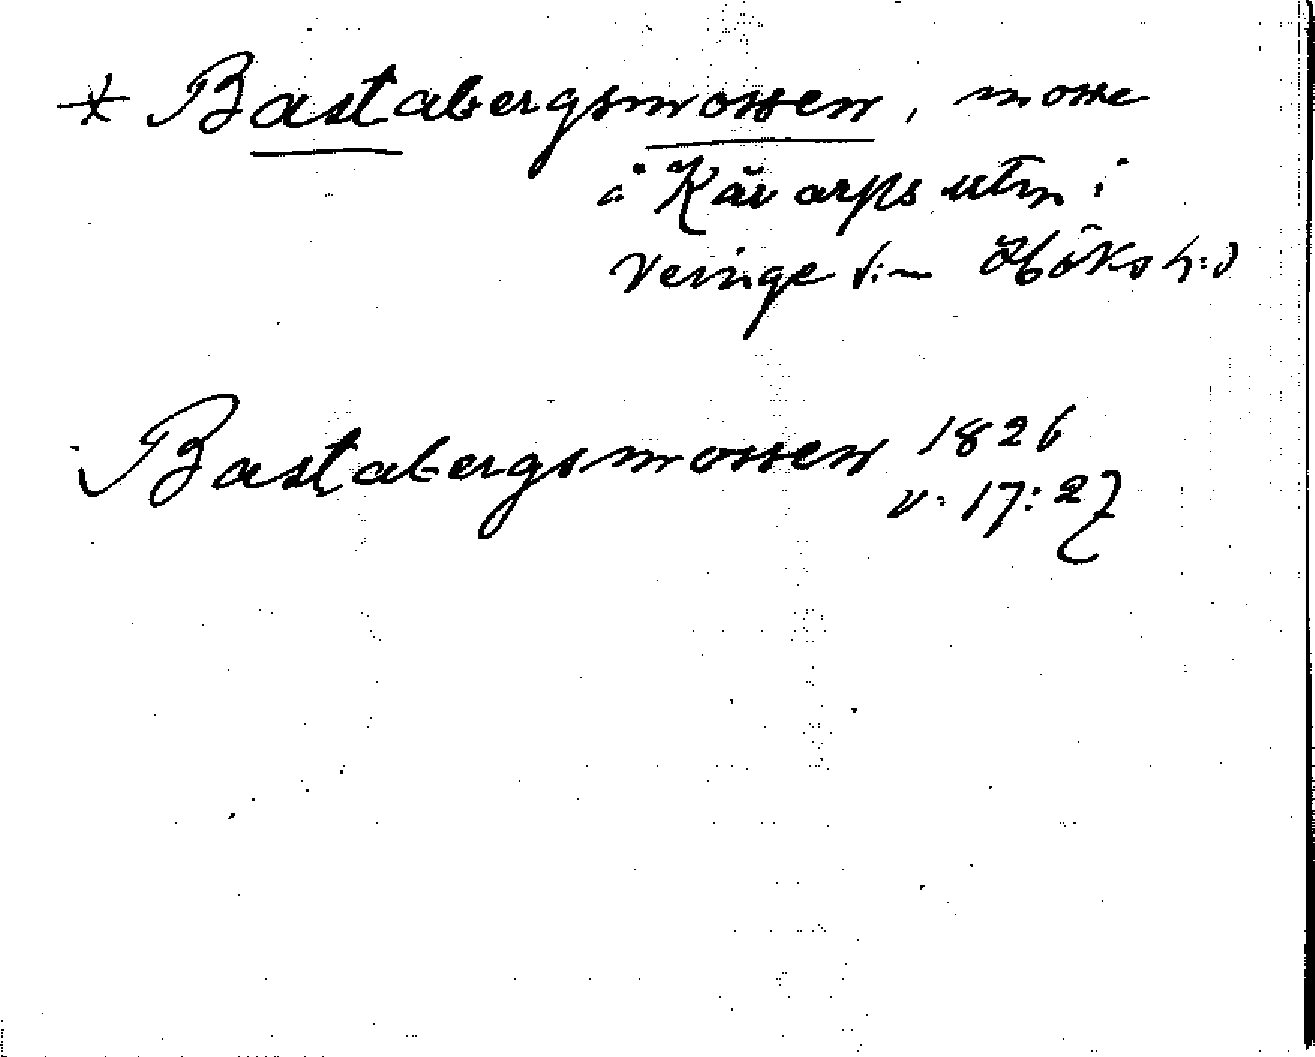 * Bastabergsmossen, mosse
å Kävarps utm i
Veinge s:n Höks h:d
Bastabergsmossen 1826
v. 17:27